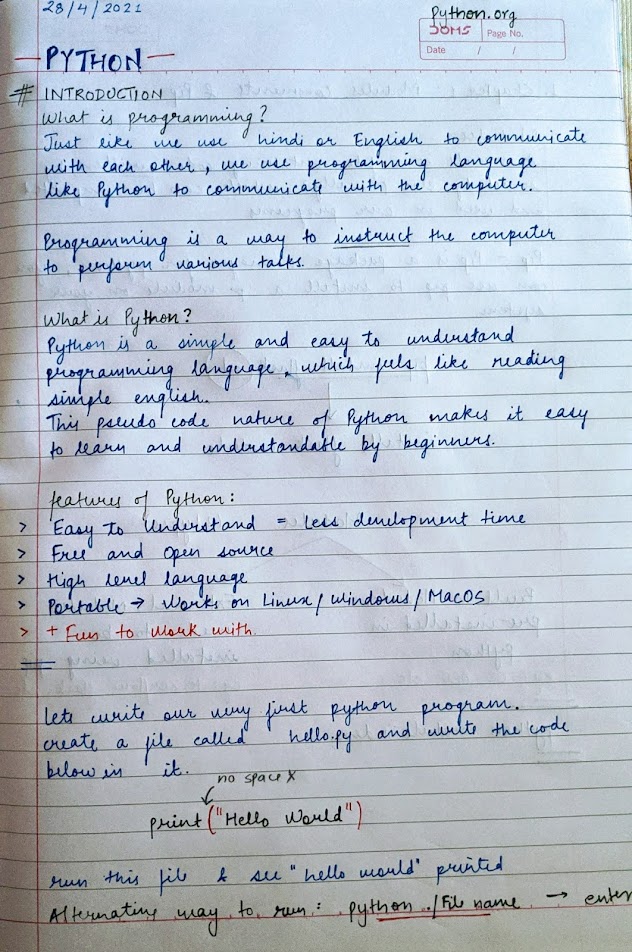 28/4/2021
Python.org
DOMS
Page No.
Date / /
PYTHON
# INTRODUCTION
What is programming?
Just like we use hindi or English to communicate
with each other, we use programming language
like Python to communicate with the computer.
Programming is a way to instruct the computer
to perform various talks.
What is Python?
Python is a simple and easy to understand
programming language, which fuls like reading
simple english.
This pseudo code nature of Python makes it easy
to learn and understandable by beginners.
features of Python:
> Easy To Understand = Less development time
> Free and Open source
> High level language
> Portable → Works on Linux/Windows/MacOS
> + Fun to Work with.
Lets write our very first python program.
create a file called hello.py and write the code
below in it.
no space X
print("Hello World")
run this file & see "hello world" printed
Alternating way to run: python ./File name → enter